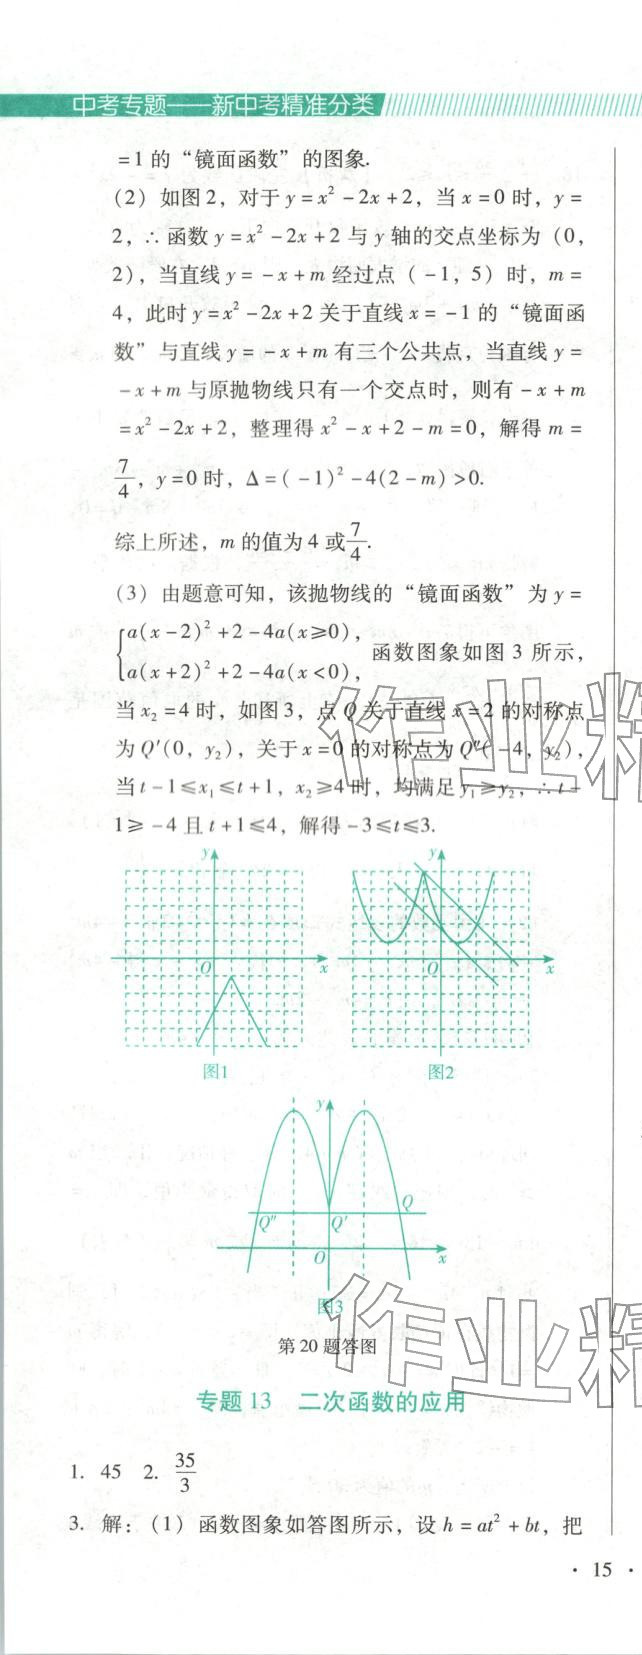 中考专题——新中考精准分类
=1 的“镜面函数”的图象.
(2) 如图 2，对于 y=x²-2x+2，当 x=0 时，y=
2，∴ 函数 y=x²-2x+2 与 y 轴的交点坐标为 (0，
2)，当直线 y=-x+m 经过点 (-1，5) 时，m=
4，此时 y=x²-2x+2 关于直线 x=-1 的“镜面函
数”与直线 y=-x+m 有三个公共点，当直线 y=
-x+m 与原抛物线只有一个交点时，则有 -x+m
=x²-2x+2，整理得 x²-x+2-m=0，解得 m=
7/4，y=0 时，Δ=(-1)²-4(2-m)>0.
综上所述，m 的值为 4 或 7/4.
(3) 由题意可知，该抛物线的“镜面函数”为 y=
{a(x-2)²+2-4a(x≥0)，
a(x+2)²+2-4a(x<0)，函数图象如图 3 所示，
当 x₂=4 时，如图 3，点 Q 关于直线 x=2 的对称点
为 Q′(0，y₂)，关于 x=0 的对称点为 Q″(-4，y₂)，
当 t-1≤x₁≤t+1，x₂≥4 时，均满足 y₁≥y₂，∴ t-
1≥-4 且 t+1≤4，解得 -3≤t≤3.
作业精
y
O
x
图1
y
O
x
图2
y
Q″
Q′
Q
O
x
图3
作业精
第 20 题答图
专题 13 二次函数的应用
1. 45 2. 35/3
3. 解：(1) 函数图象如答图所示，设 h=at²+bt，把
· 15 ·